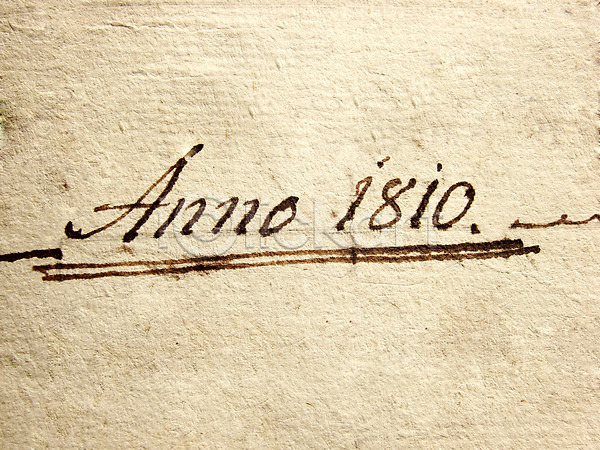 Anno 1810.